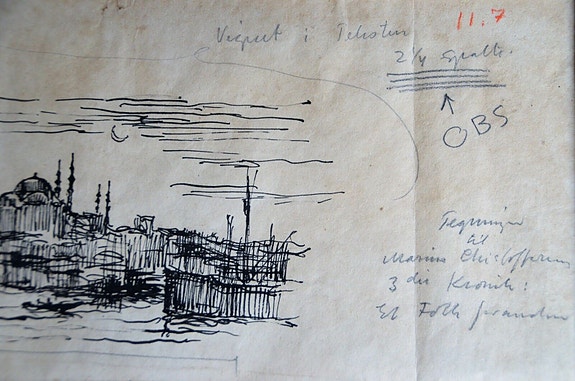 11.7
Vignet i Teksten
2 1/4 spalte.
OBS
Tegninger
til
Marius
3die Kronik:
Et Folk